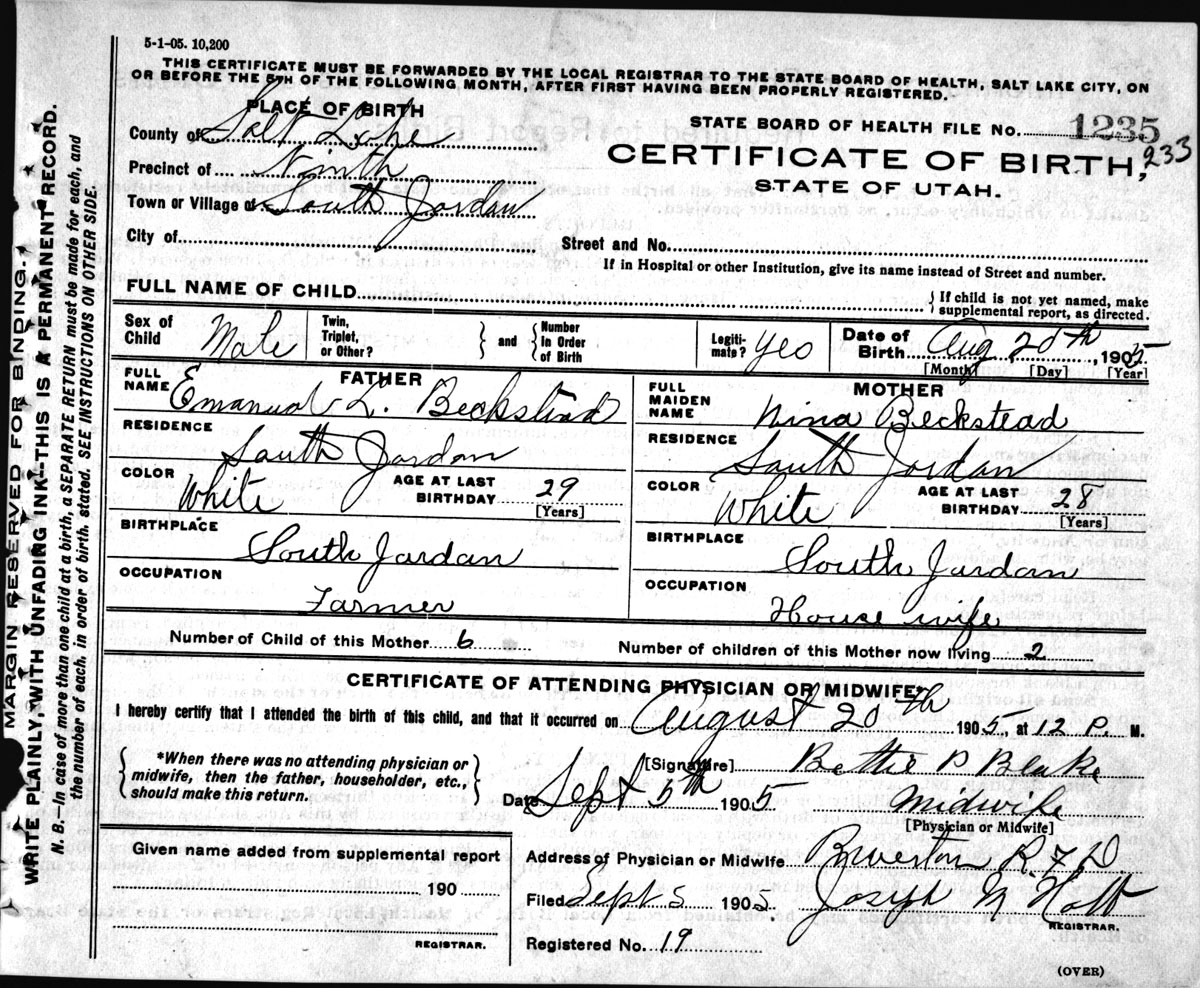 5-1-05. 10,200
THIS CERTIFICATE MUST BE FORWARDED BY THE LOCAL REGISTRAR TO THE STATE BOARD OF HEALTH, SALT LAKE CITY, ON
OR BEFORE THE 5TH OF THE FOLLOWING MONTH, AFTER FIRST HAVING BEEN PROPERLY REGISTERED.
PLACE OF BIRTH
County of Salt Lake
Precinct of Ninth
Town or Village of South Jordan
City of
STATE BOARD OF HEALTH FILE NO. 1235
233
CERTIFICATE OF BIRTH,
STATE OF UTAH.
Street and No.
If in Hospital or other Institution, give its name instead of Street and number.
FULL NAME OF CHILD
If child is not yet named, make
supplemental report, as directed.
Sex of Child Male
Twin, Triplet, or Other?
and
Number In Order of Birth
Legiti-mate? Yes
Date of Birth Aug 20th, 1905
[Month] [Day] [Year]
FATHER
FULL NAME Emanuel L. Beckstead
RESIDENCE
South Jordan
COLOR White
AGE AT LAST BIRTHDAY 29
[Years]
BIRTHPLACE
South Jordan
OCCUPATION
Farmer
MOTHER
FULL MAIDEN NAME Nina Beckstead
RESIDENCE
South Jordan
COLOR White
AGE AT LAST BIRTHDAY 28
[Years]
BIRTHPLACE
South Jordan
OCCUPATION
House wife
Number of Child of this Mother 6
Number of children of this Mother now living 2
CERTIFICATE OF ATTENDING PHYSICIAN OR MIDWIFE*
I hereby certify that I attended the birth of this child, and that it occurred on August 20th 1905, at 12 P. M.
*When there was no attending physician or
midwife, then the father, householder, etc.,
should make this return.
[Signature] Bettie P Blake
Date Sept 5th 1905 Midwife
[Physician or Midwife]
Given name added from supplemental report
190
REGISTRAR.
Address of Physician or Midwife Riverton R F D
Filed Sept 5 1905 Joseph M Holt
REGISTRAR.
Registered No. 19
(OVER)
MARGIN RESERVED FOR BINDING.
WRITE PLAINLY, WITH UNFADING INK--THIS IS A PERMANENT RECORD.
N. B.—In case of more than one child at a birth, a SEPARATE RETURN must be made for each, and
the number of each, in order of birth, stated. SEE INSTRUCTIONS ON OTHER SIDE.